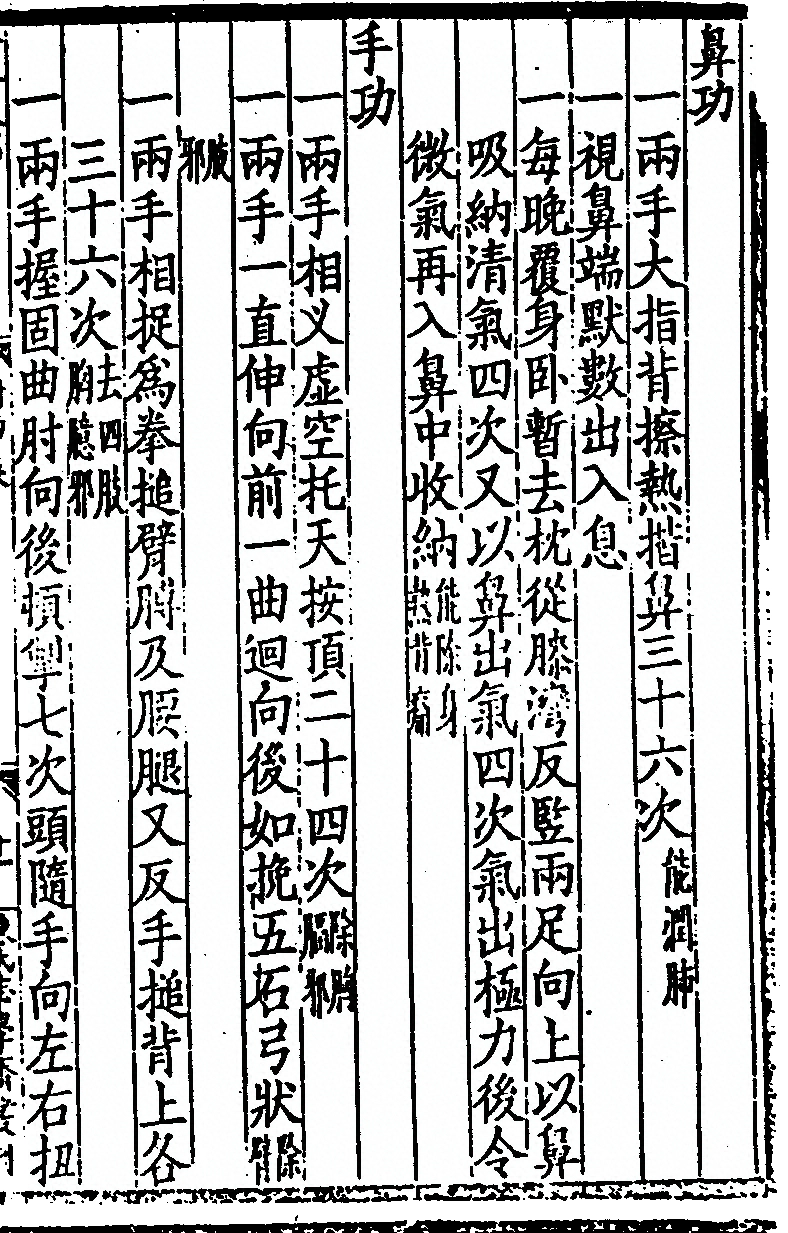 鼻功
一兩手大指背擦熱揩鼻三十六次能潤肺
一視鼻端默數出入息
一每晚覆身卧暫去枕從膝灣反竪兩足向上以鼻
吸納清氣四次又以鼻出氣四次氣出極力後令
微氣再入鼻中收納能除身熱背
手功
一兩手相义虛空托天按頂二十四次除胸膈邪
一兩手一直伸向前一曲迴向後如挽五石弓狀除臂
腋邪
一兩手相捉為拳搥臂膊及腰腿又反手搥背上各
三十六次去四肢胸臆邪
一兩手握固曲肘向後頓掣七次頭隨手向左右扭